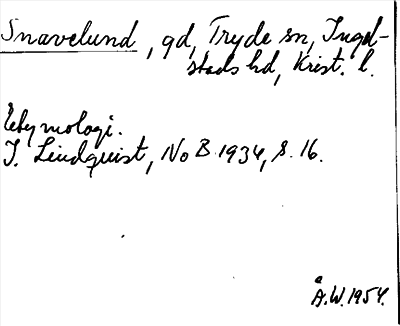 Snavelund, gd, Tryde sn, Ingel-
stads hd, Krist. l.
Etymologi.
I. Lindquist, NoB 1934, s. 16.
Å.W. 1954.